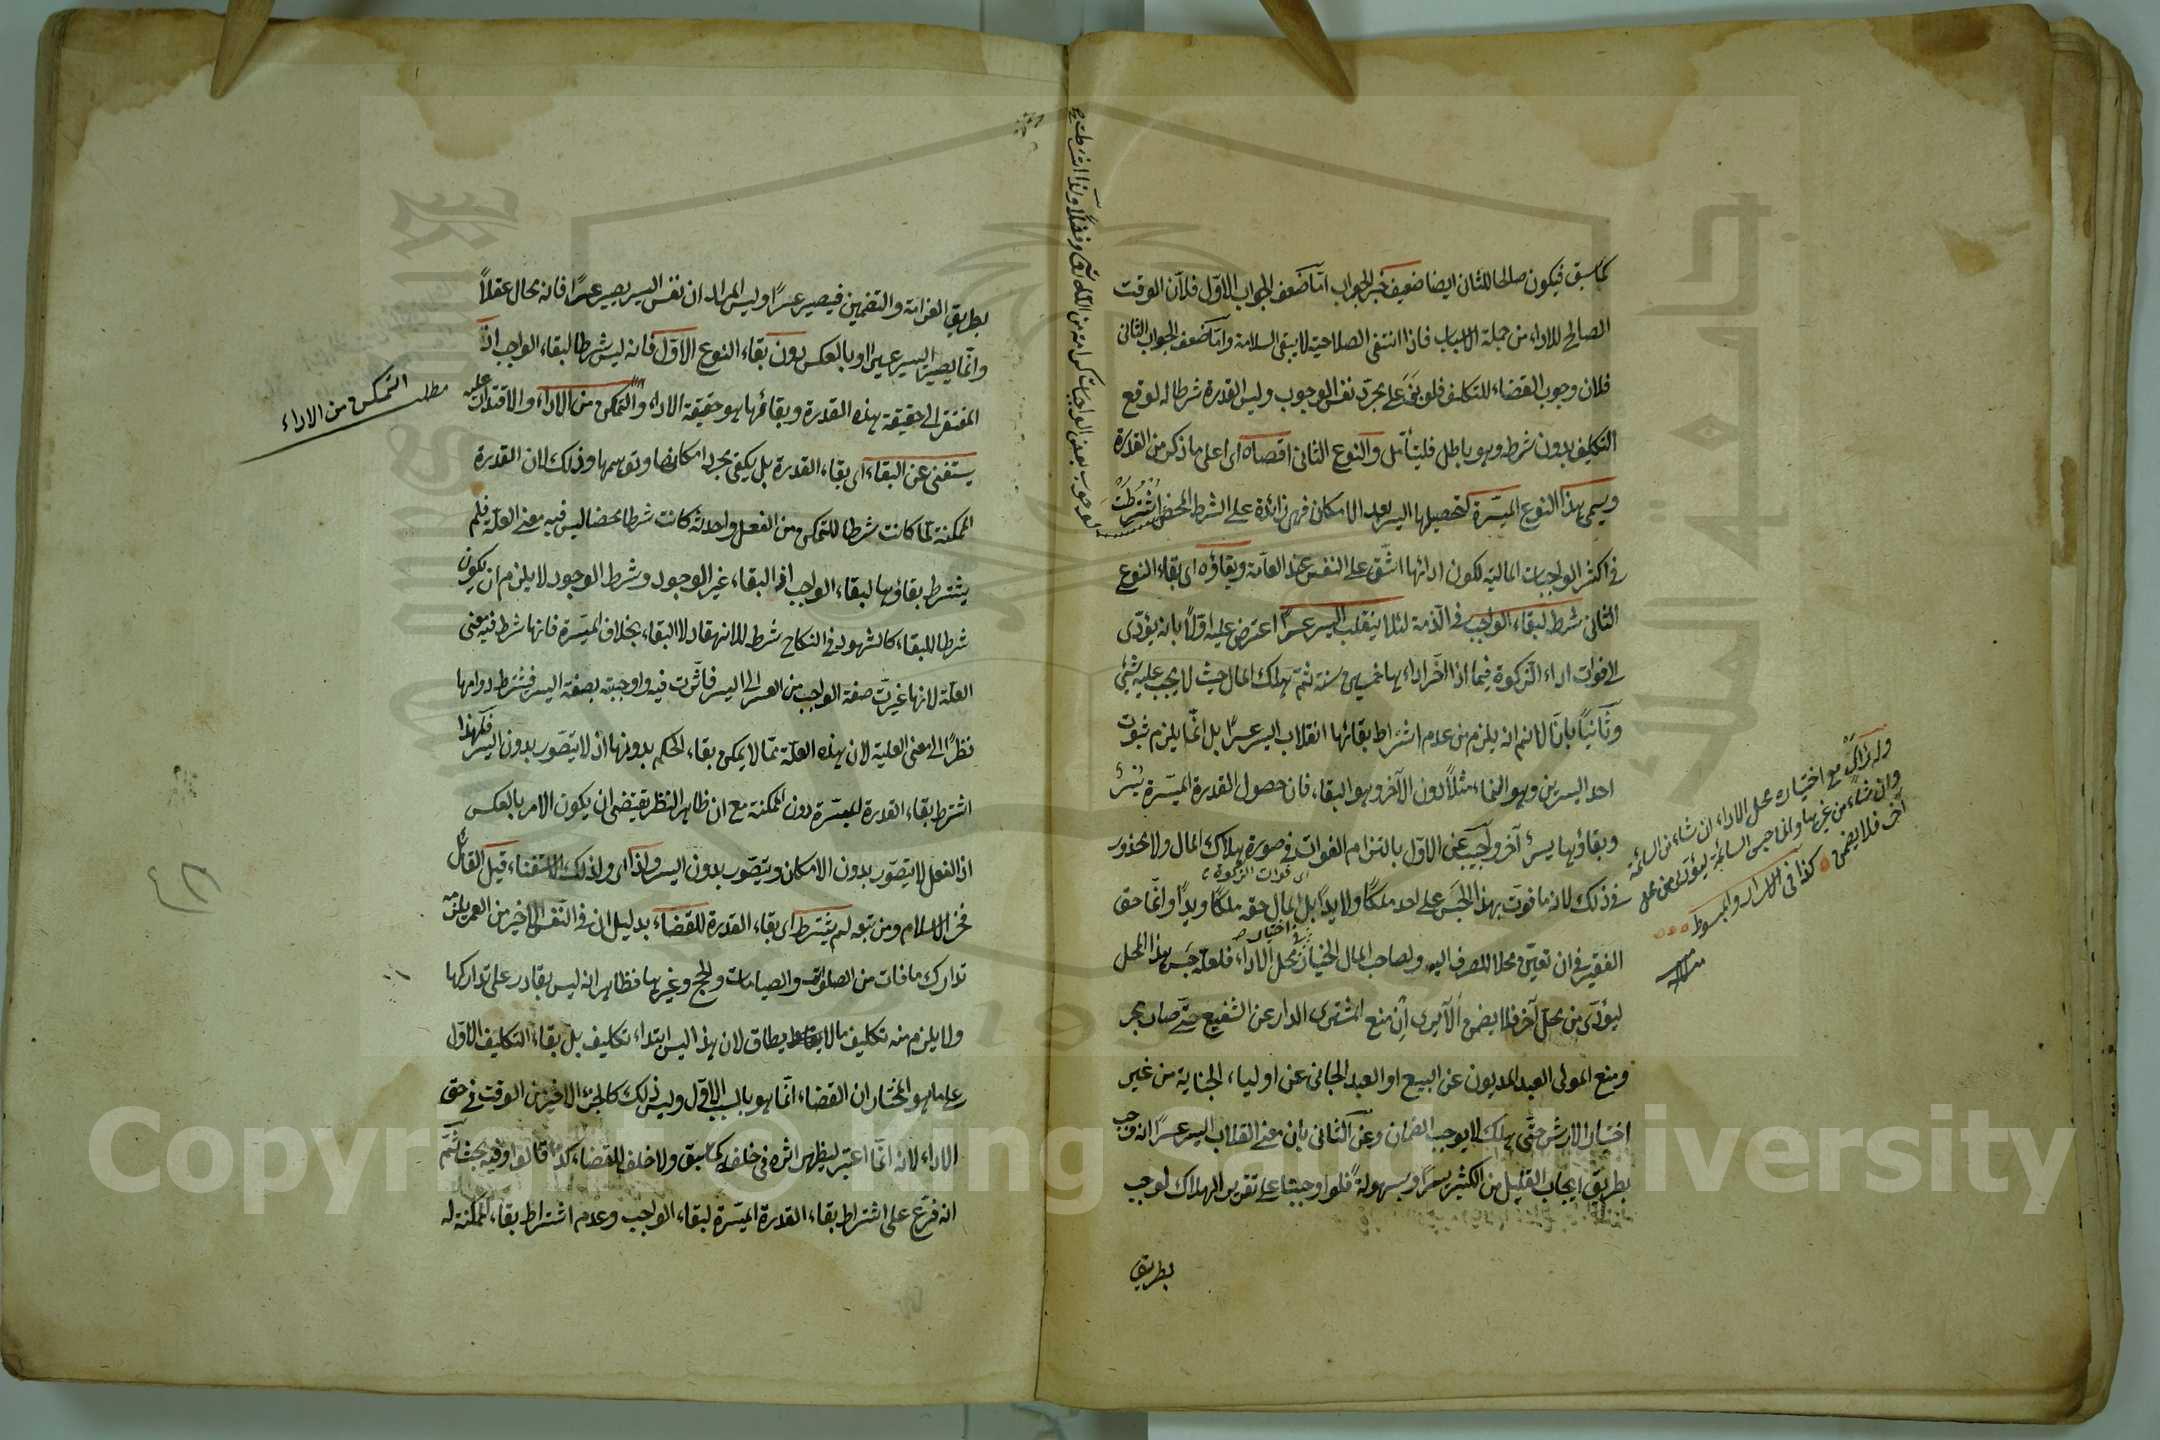 كما سبق فيكون صالحا للثاني ايضا ضعيف خبر الجواب اما ضعف الجواب الاول فلان الوقت
الصالح للاداء من جملة الاسباب فاذا انتفى الصلاحية لا يبقى السلامة واما ضعف الجواب الثاني
فلان وجوب القضاء للتكليف فلو بقى على مجرد نفس الوجوب وليس القدرة شرطا له لوقع
التكليف بدون شرطه وهو باطل فليتأمل والنوع الثاني اقصاه اى اعلى ما ذكر من القدرة
ويسمى هذا النوع الميسرة لتحصيلها اليسر بعد الامكان فهى زائدة على الشرط المحض اشترطت
فى اكثر الواجبات المالية لكون ادائها اشق على النفس عند العامة وبقاؤه اى بقاء النوع
الثانى شرط لبقاء الواجب فى الذمة لئلا ينقلب اليسر عسرا اعترض عليه اولا بانه يؤدى
الى فوات اداء الزكوة فيما اذا اخر اداءها خمسين سنة ثم هلك المال حيث لا يجب عليه شئ
وثانيا بانا لا نم انه يلزم من عدم اشتراط بقائها انقلاب اليسر عسرا بل انما يلزم ثبوت
احد اليسرين وهو النماء مثلا دون الآخر وهو البقاء فان حصول القدرة الميسرة يسر
وبقاؤها يسر آخر واجيب عن الاول بالتزام الفوات فى صورة هلاك المال ولا محذور
اى فوات الزكوة
فى ذلك لانه ما فوت بهذا الحبس على احد ملكا ولا يدا بل المال حقه ملكا ويدا وانما حق
الفقير فى ان تعين محلا للصرف اليه ولصاحب المال الخيار فى محل الاداء فلعله حبس هذا المحل
ليؤدى من محل آخر فلا يضمن الا يرى ان منع المشترى الدار عن الشفيع حتى صار بحرا
ومنع المولى العبد المديون عن البيع او العبد الجانى عن اولياء الجناية من غير
اختيار الارش حتى هلك لا يوجب الضمان وعن الثانى بان معنى انقلاب اليسر عسرا انه وجب
بطريق ايجاب القليل من الكثير يسرا وسهولة فلو اوجبنا على تقدير الهلاك لوجب
بطريق
لوجوب بعض الواجبات كرامة من الله تعالى وفضلا ولذا اشترطت
وله ذلك مع اختياره محل الاداء ان شاء من السائمة
وان شاء من غيرها وانما حبس السائمة ليؤدى من محل
آخر فلا يضمن كذا فى الاسرار والمبسوط
بطريق الغرامة والتضمين فيصير عسرا وليس المراد ان نفس اليسر يصير عسرا فانه محال عقلا
وانما يصير اليسير عسيرا وبالعكس دون بقاء النوع الاول فانه ليس شرطا لبقاء الواجب اذ
المفتقر الى حقيقة هذه القدرة وبقاؤها هو حقيقة الاداء والتمكن من الاداء والاقتدار عليه
يستغنى عن البقاء اى بقاء القدرة بل يكفى مجرد امكانها وتوهمها وذلك لان القدرة
الممكنة لما كانت شرطا للتمكن من الفعل واحداثه كانت شرطا محضا ليس فيه معنى العلة فلم
يشترط بقاؤها لبقاء الواجب اذ البقاء غير الوجود وشرط الوجود لا يلزم ان يكون
شرطا للبقاء كالشهود فى النكاح شرط للانعقاد لا البقاء بخلاف الميسرة فانها شرط فيه معنى
العلة لانها غيرت صفة الواجب من العسر الى اليسر فاثرت فيه واوجبته بصفة اليسر فيشترط دوامها
نظرا الى معنى العلية لان هذه العلة مما لا يمكن بقاء الحكم بدونها اذ لا يتصور بدون اليسر فلهذا
اشترط بقاء القدرة الميسرة دون الممكنة مع ان ظاهر النظر يقتضى ان يكون الامر بالعكس
اذ الفعل لا يتصور بدون الامكان ويتصور بدون اليسر ولذا اى ولذلك الاستغناء قيل القائل
فخر الاسلام ومن تبعه لم يشترط اى بقاء القدرة للقضاء بدليل ان فى النفس الاخير من العمر يلزمه
تدارك ما فات من الصلوات والصيامات والحج وغيرها فظاهر انه ليس بقادر على تداركها
ولا يلزم منه تكليف ما لا يطاق لان هذا ليس ابتداء تكليف بل بقاء التكليف الاول
على ما هو المختار ان القضاء انما هو بالسبب الاول وليس ذلك كالجزء الاخير من الوقت فى حق
الاداء لانه انما اعتبر ليظهر اثره فى خلفه كما سبق ولا خلف للقضاء كذا قالوا وفيه بحث ثم
انه فرع على اشتراط بقاء القدرة الميسرة لبقاء الواجب وعدم اشتراط بقاء الممكنة له
مطلب التمكن من الاداء
Copyright © King Saud University